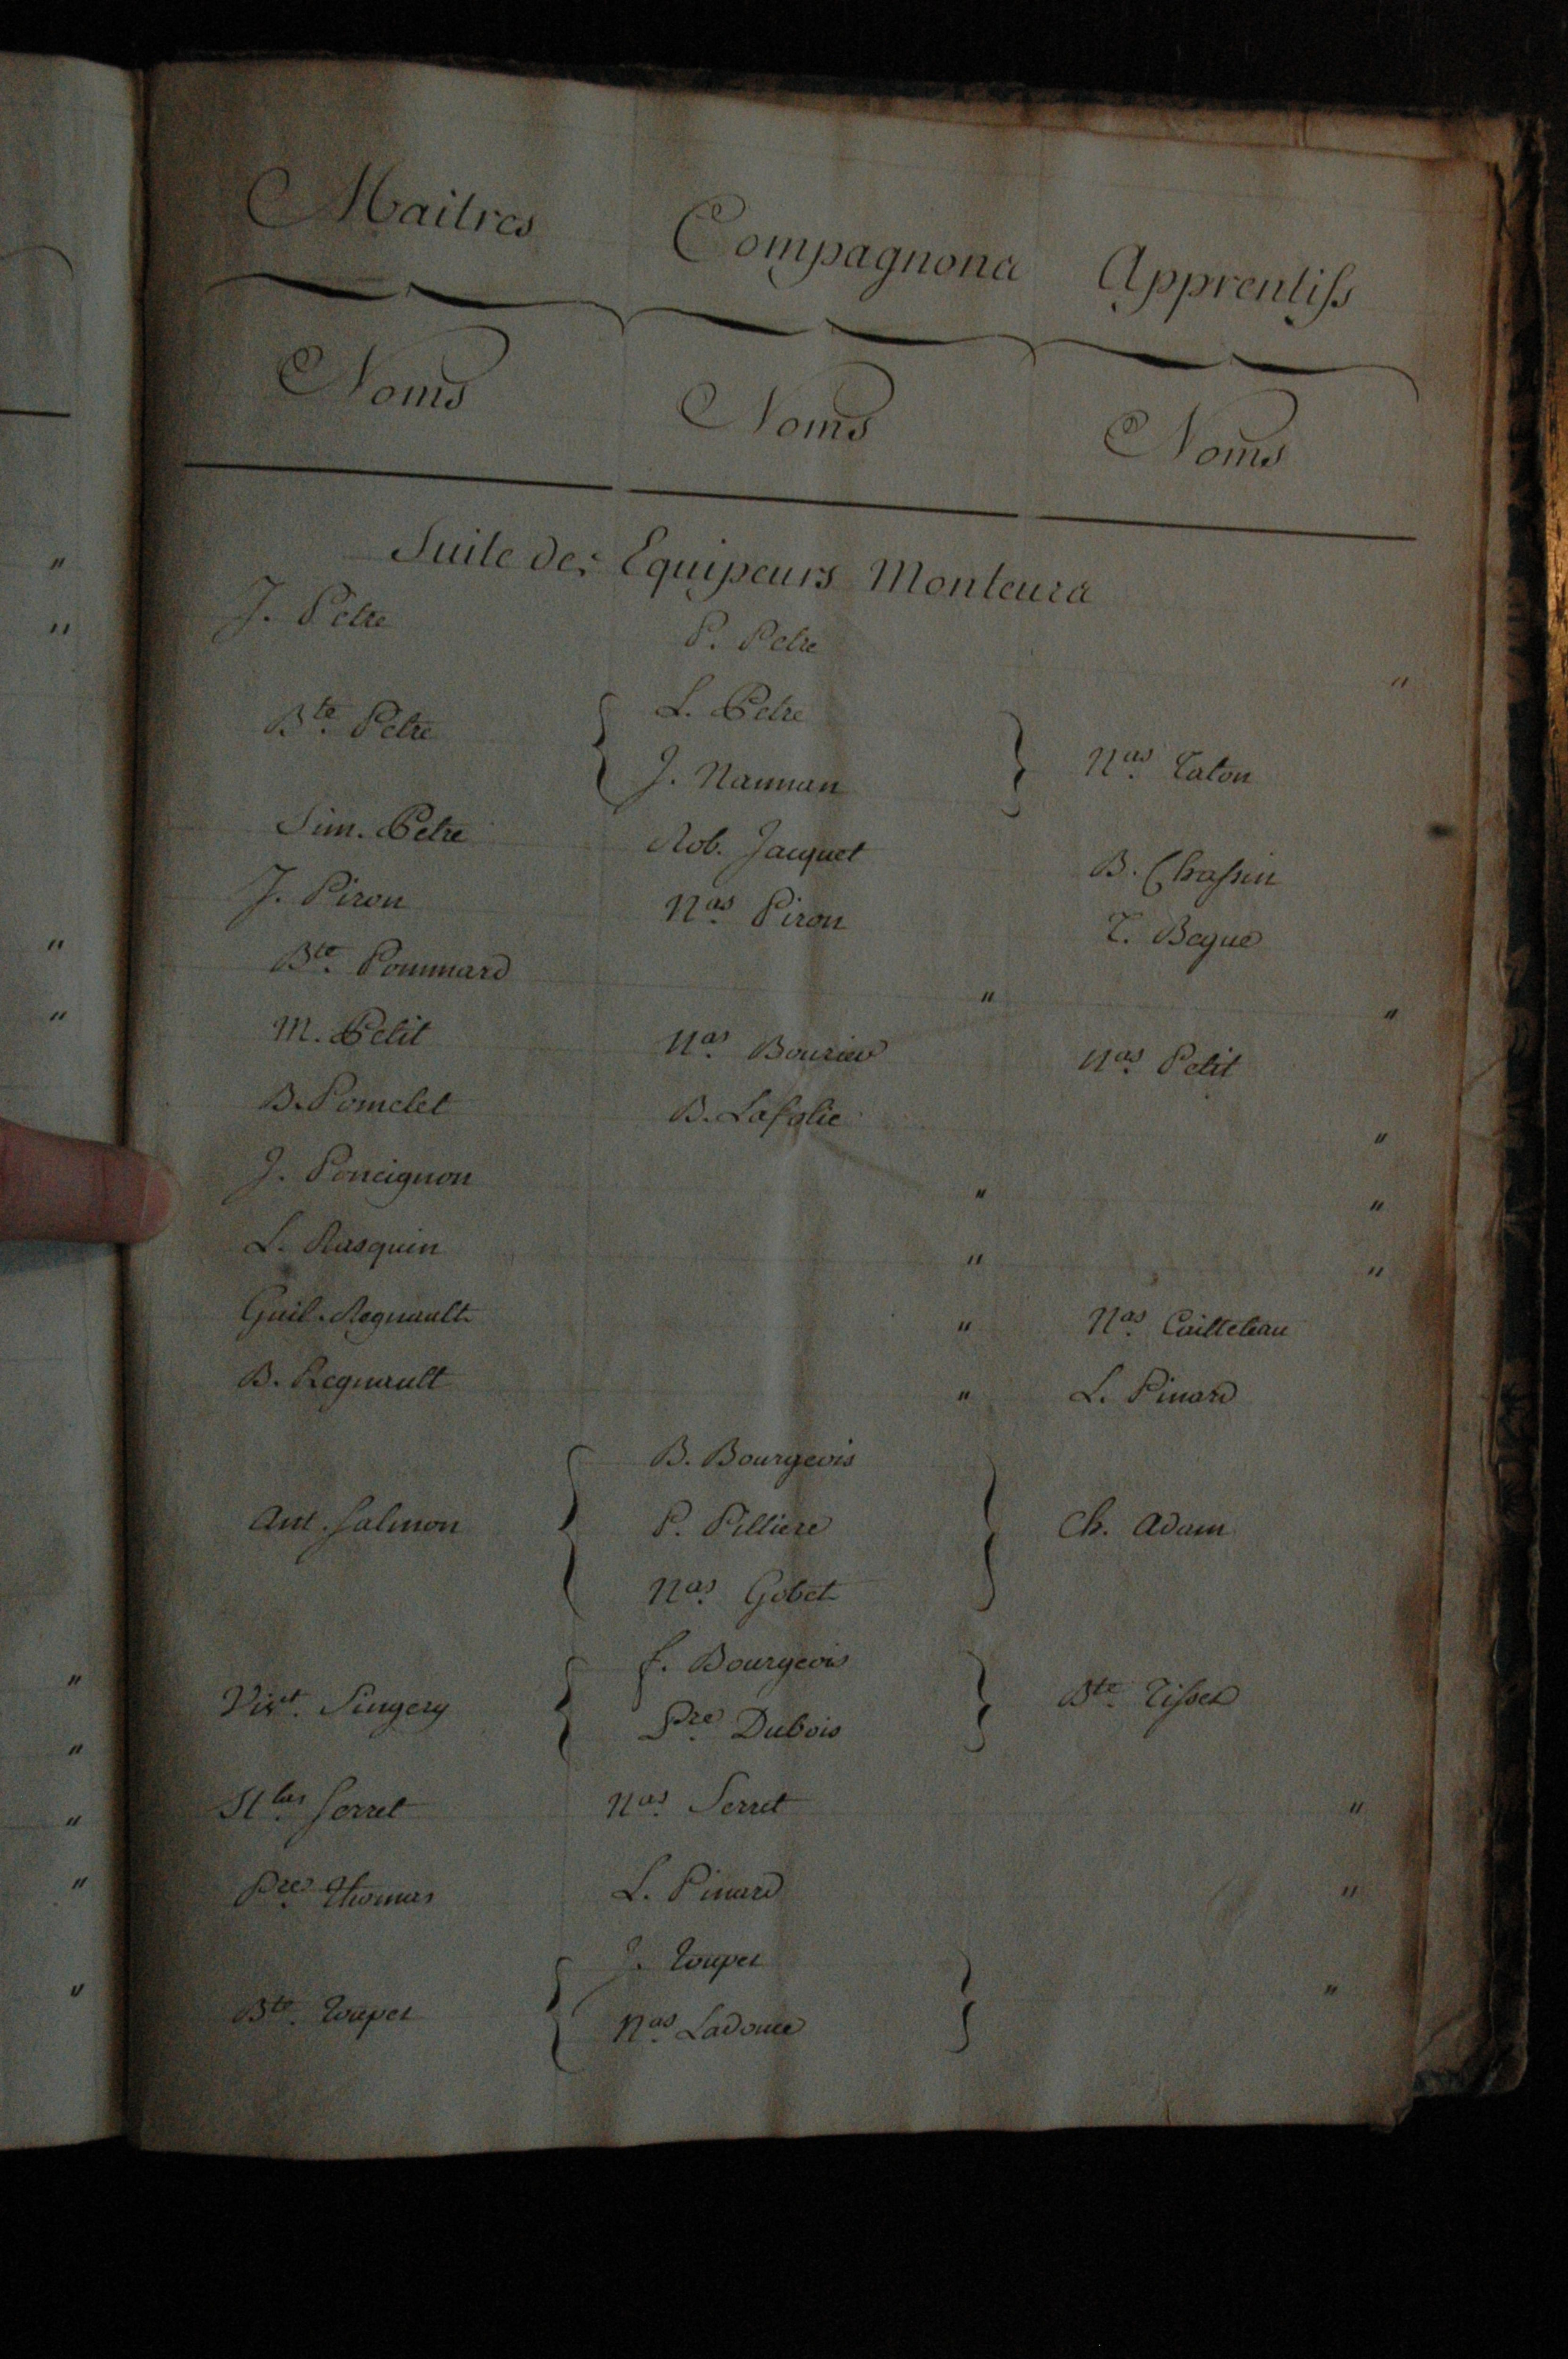 Maitres Compagnons Apprentiss
Noms Noms Noms
Suite des Equipeurs Monteurs
J. Petre P. Petre "
Bte. Petre { L. Petre
J. Nannan } Nas. Taton
Sim. Petre Rob. Jacquet B. Chassin
J. Piron Nas. Piron T. Begue
Bte. Pommard " "
M. Petit Nas. Bourier Nas. Petit
B. Pomelet B. Lafolie "
J. Poncignon " "
L. Rasquin " "
Guil. Regnault " Nas.
B. Regnault " L. Pinard
Ant. Salmon { B. Bourgeois
P. Pilliere
Nas. Gobet } Ch. Adam
Vixt. Singery { f. Bourgeois
Pre. Dubois } Bte. Tisset
Stlas. Serret Nas. Serret "
Pre. Thomas L. Pinard "
Bte. Toupet { J. Toupet
Nas. Ladouce } "